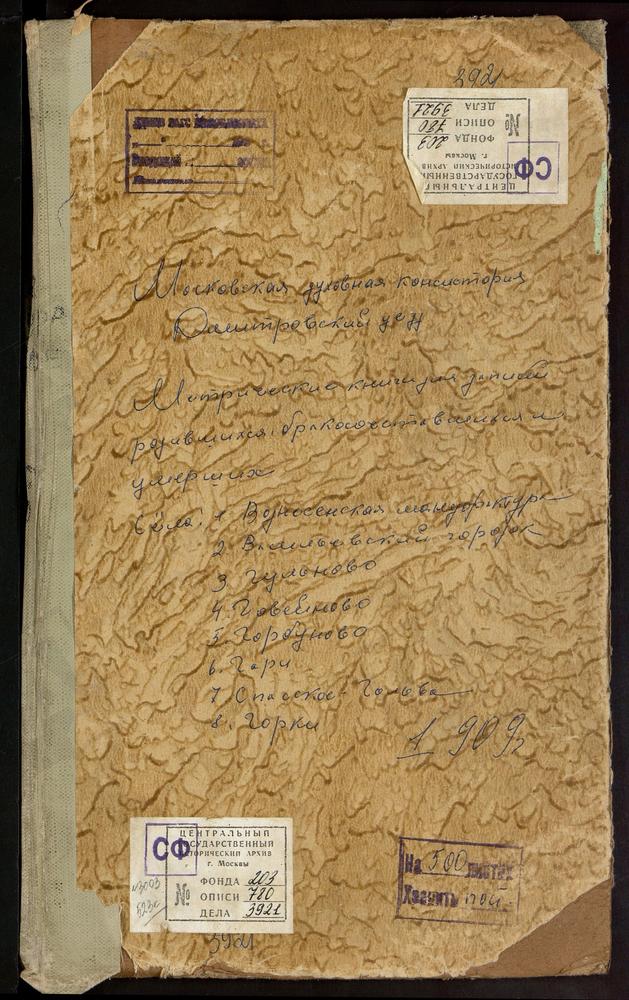 3921
ЦЕНТРАЛЬНЫЙ
ГОСУДАРСТВЕННЫЙ
ИСТОРИЧЕСКИЙ АРХИВ
г. Москвы
СФ
№
ФОНДА 203
ОПИСИ 780
ДЕЛА 3921
Московская духовная консистория
Дмитровский уезд
Метрические книги для записи
родившихся, бракосочетавшихся и
умерших
Сёла: 1 Вознесенская мануфактура
2 Васильевский городок
3 Гульново
4. Говейново
5. Горбуново
6. Гари
7 Спасское-Гольева
8. Горки
1909г
ЦЕНТРАЛЬНЫЙ
ГОСУДАРСТВЕННЫЙ
ИСТОРИЧЕСКИЙ АРХИВ
г. Москвы
СФ
№
ФОНДА 203
ОПИСИ 780
ДЕЛА 3921
3921
На 500 листах
Хранить